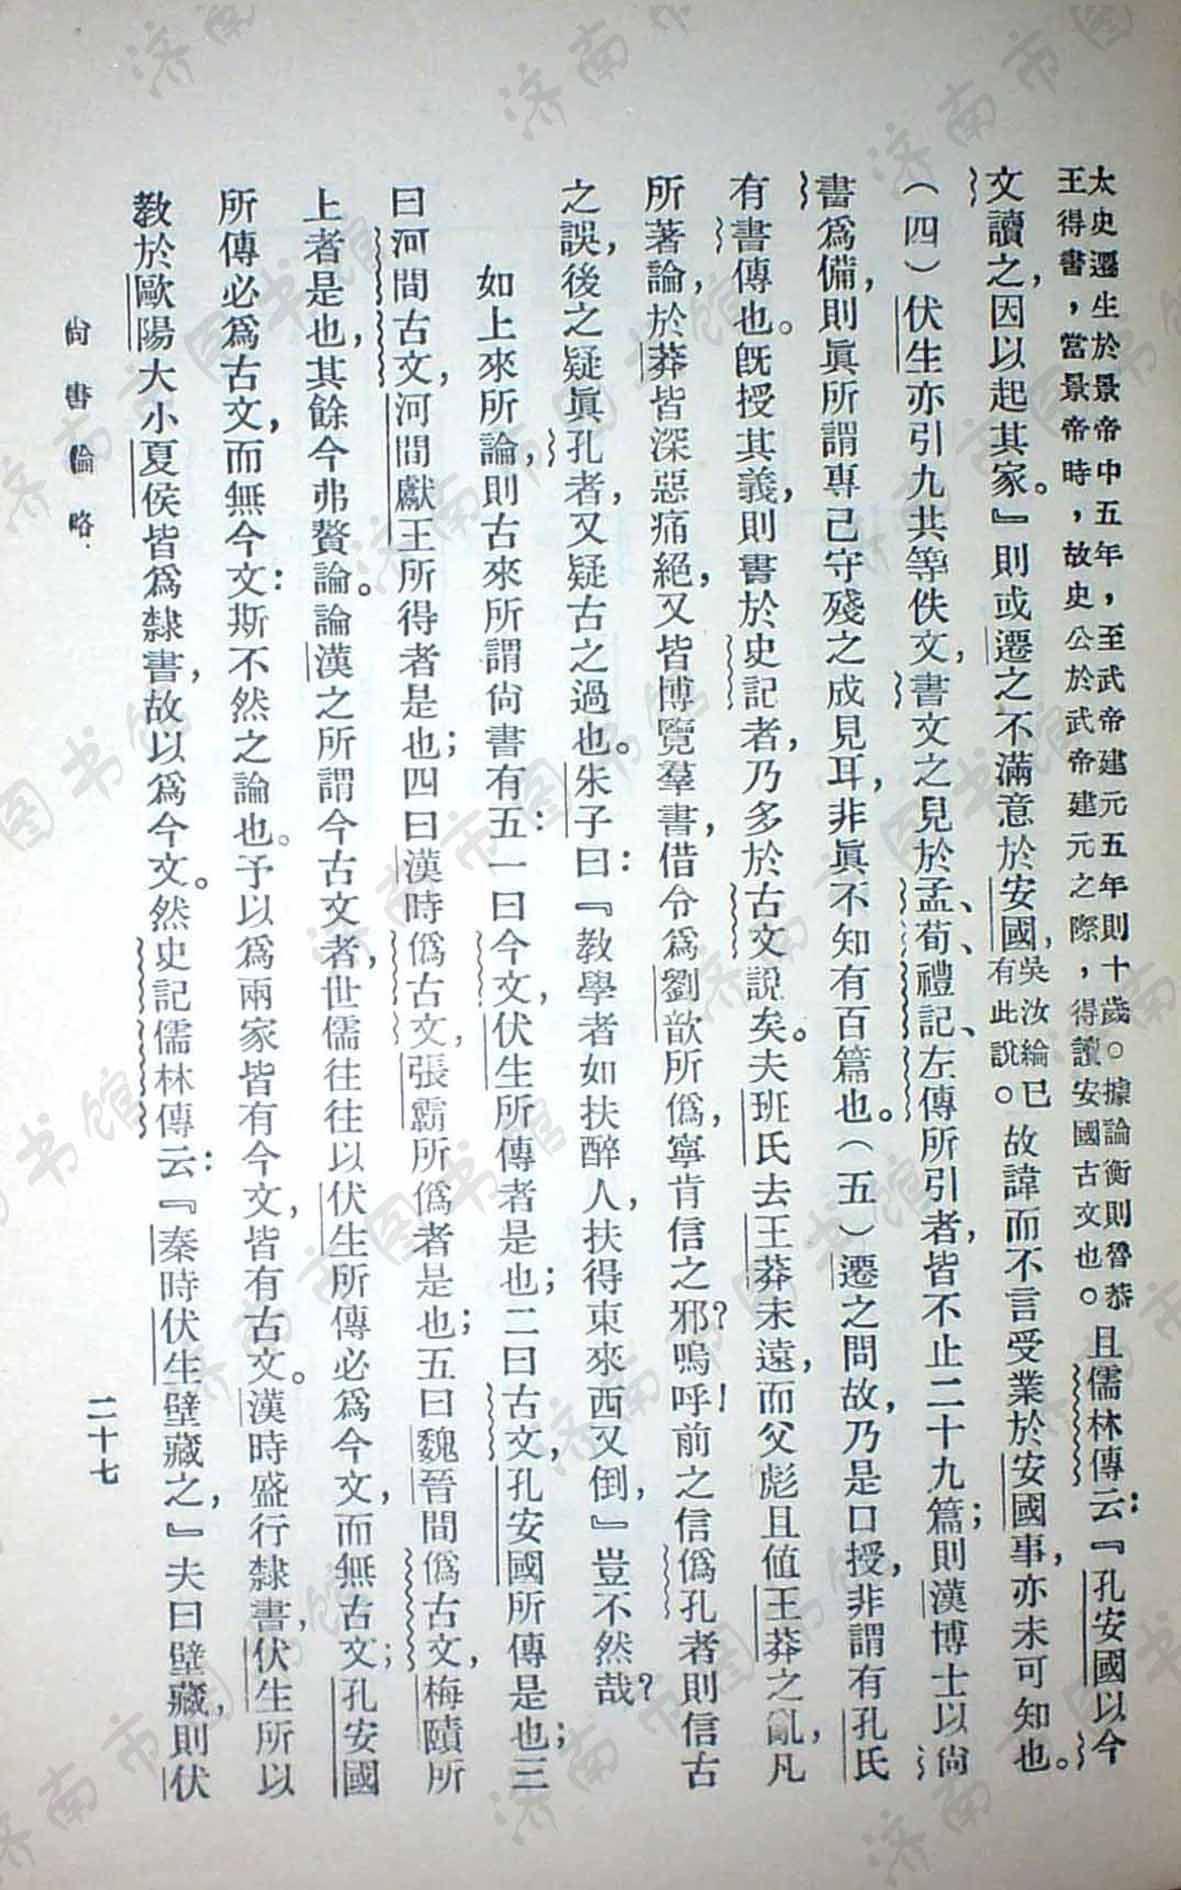 太史遷生於景帝中五年，至武帝建元五年則十歲。據論衡則魯恭
王得書，當景帝時，故史公於武帝建元之際，得讀安國古文也。
且儒林傳云：『孔安國以今
文讀之，因以起其家。』則或遷之不滿意於安國，吳汝綸已有此說。故諱而不言受業於安國事，亦未可知也。
（四）伏生亦引九共等佚文，書文之見於孟、荀、禮記、左傳所引者，皆不止二十九篇；則漢博士以尙
書爲備，則眞所謂專己守殘之成見耳，非眞不知有百篇也。（五）遷之問故，乃是口授，非謂有孔氏
有書傳也。旣授其義，則書於史記者，乃多於古文說矣。夫班氏去王莽未遠，而父彪且値王莽之亂，凡
所著論，於莽皆深惡痛絕，又皆博覽羣書，借令爲劉歆所僞，寧肯信之邪？嗚呼！前之信僞孔者則信古
之誤，後之疑眞孔者，又疑古之過也。朱子曰：『教學者如扶醉人，扶得東來西又倒，』豈不然哉？
如上來所論，則古來所謂尙書有五：一曰今文，伏生所傳者是也；二曰古文，孔安國所傳是也；三
曰河間古文，河間獻王所得者是也；四曰漢時僞古文，張霸所僞者是也；五曰魏晉間僞古文，梅賾所
上者是也，其餘今弗贅論。論漢之所謂今古文者，世儒往往以伏生所傳必爲今文，而無古文；孔安國
所傳必爲古文，而無今文：斯不然之論也。予以爲兩家皆有今文，皆有古文。漢時盛行隸書，伏生所以
教於歐陽大小夏侯皆爲隸書，故以爲今文。然史記儒林傳云：『秦時伏生壁藏之，』夫曰壁藏，則伏
尙書論略
二十七
济南市图书馆